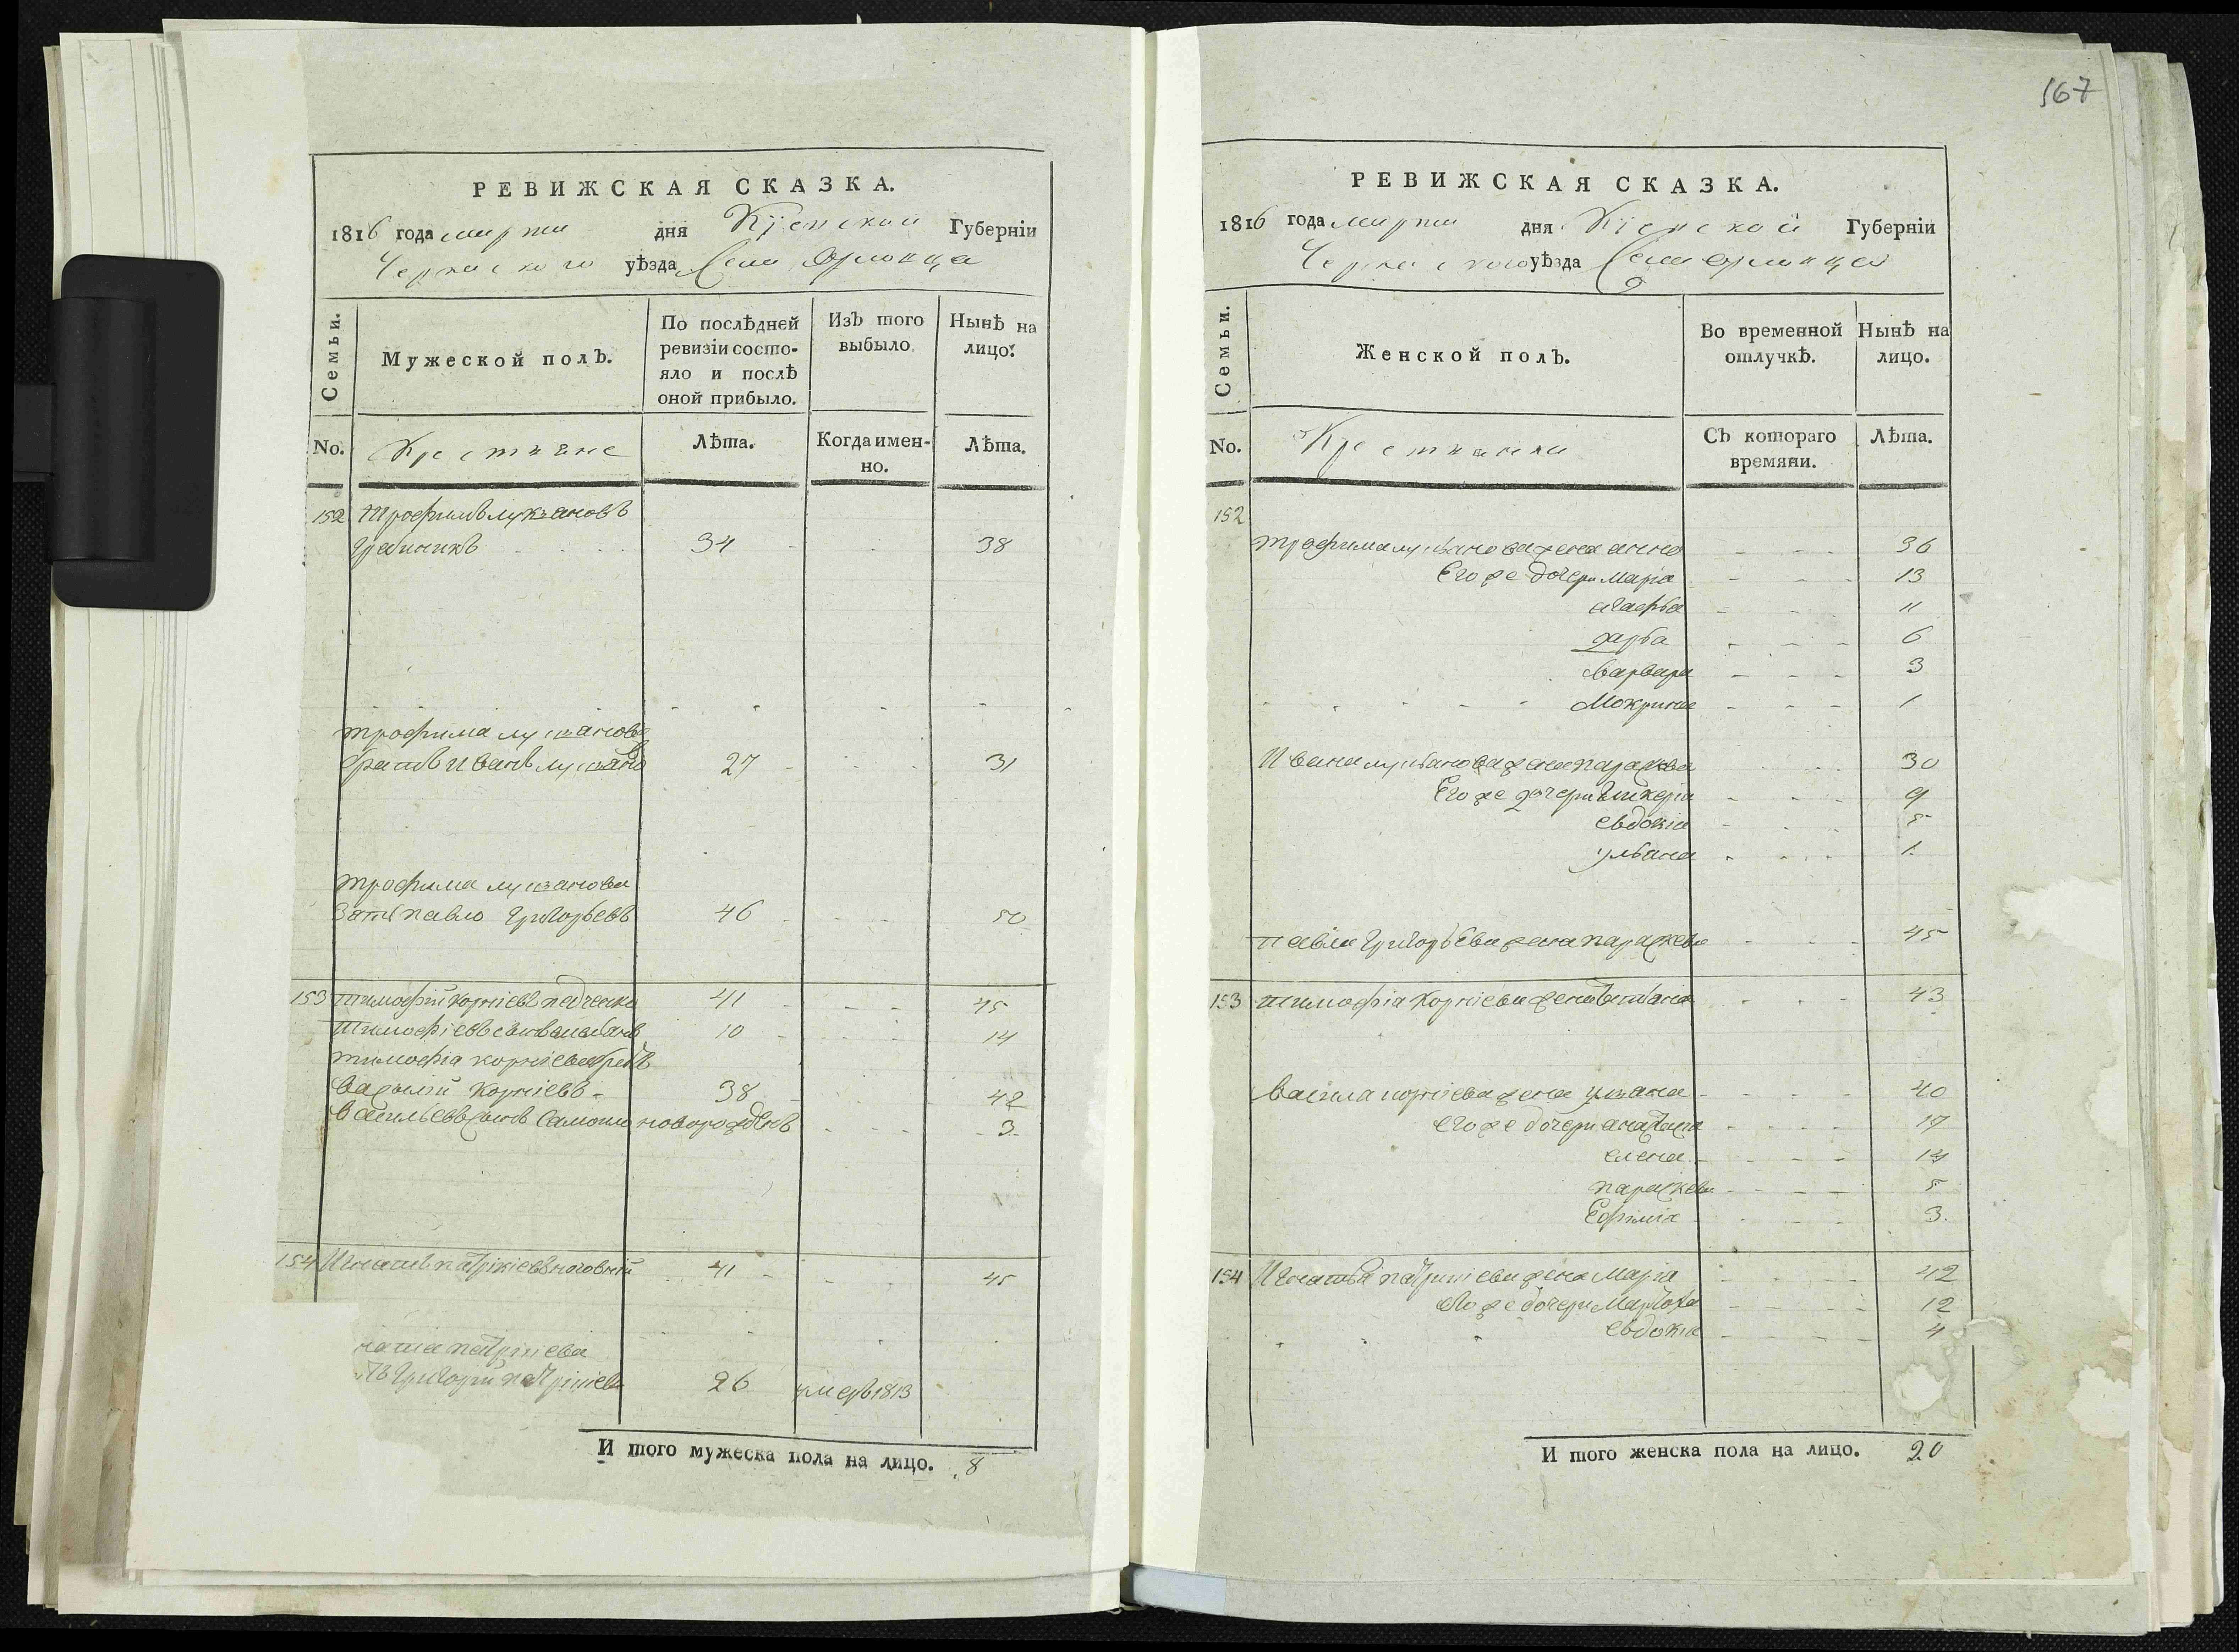 167
РЕВИЖСКАЯ СКАЗКА.
1816 года марта дня Кіевской Губерніи
Черкаского уѣзда Села Орловца
Семьи.
Мужеской полъ.
По послѣдней ревизіи состояло и послѣ оной прибыло.
Изъ того выбыло.
Нынѣ на лицо.
No.
Крестьяне
Лѣта.
Когда именно.
Лѣта.
152 Трофимъ лукьяновъ
34 38
трофима лукьянова
братъ Иванъ лукьяно 27 31
трофима лукьянова
зять павло Григорьевъ 46 50
153 тимофій Корніевъ 41 45
тимофіевъ сынъ 10 14
тимофіа корніева братъ
василій Корніевъ 38 42
васильевъ сынъ Самойло новорожденъ 3
154 Игнатъ патрікіевъ 41 45
патрікіева
Григорій патрікіевъ 26 умеръ 1813
И того мужеска пола на лицо. 8
РЕВИЖСКАЯ СКАЗКА.
1816 года марта дня Кіевской Губерніи
Черкаского уѣзда Села Орловца
Семьи.
Женской полъ.
Во временной отлучкѣ.
Нынѣ на лицо.
No.
Крестьянки
Съ котораго времяни.
Лѣта.
152
трофима лукьянова жена анна 36
Его же дочери Маріа 13
агафья 11
дарья 6
варвара 3
Мокрина 1
Ивана лукьянова жена параскева 30
Его же дочери Гликеріа 9
евдокіа 5
ульяна 1
павла Григорьева жена параскева 45
153 тимофіа Корніева жена татіана 43
василіа корніева жена ульяна 40
его же дочери анастасіа 17
елена 14
параскева 5
Ефиміа 3
154 Игнатья патрікіева жена Маріа 42
его же дочери Марфа 12
евдокіа 4
И того женска пола на лицо. 20